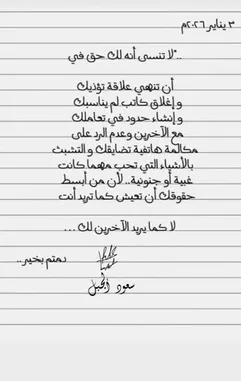 ٣ يناير ٢٠٢٦م
"لا تنسى أنه لك حق في..
أن تنهي علاقة تؤذيك
وإغلاق كتاب لم يناسبك
وإنشاء حدود في تعاملك
مع الآخرين وعدم الرد على
مكالمة هاتفية تضايقك والتشبث
بالأشياء التي تحب مهما كانت
غبية أو جنونية.. لأن من أبسط
حقوقك أن تعيش كما تريد أنت
لا كما يريد الآخرين لك...
دمتم بخير..
سعود الجبل